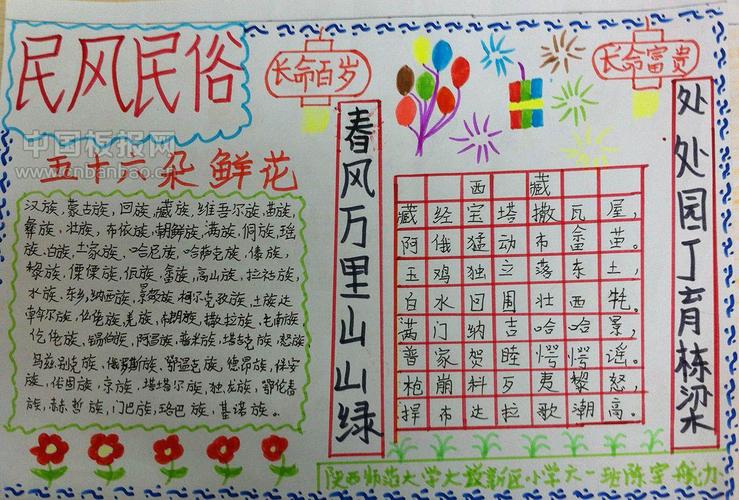 民风民俗
长命百岁
长命富贵
中国板报网
www.cnbanbao.cn
五十一朵鲜花
汉族,蒙古族,回族,藏族,维吾尔族,苗族,
彝族,壮族,布依族,朝鲜族,满族,侗族,瑶
族,白族,土家族,哈尼族,哈萨克族,傣族,
黎族,傈僳族,佤族,畲族,高山族,拉祜族,
水族,东乡,纳西族,景颇族,柯尔克孜族,土族,达
斡尔族,仫佬族,羌族,布朗族,撒拉族,毛南族,
仡佬族,锡伯族,阿昌族,普米族,塔吉克族,怒族,
乌兹别克族,俄罗斯族,鄂温克族,德昂族,保安
族,裕固族,京族,塔塔尔族,独龙族,鄂伦春
族,赫哲族,门巴族,珞巴族,基诺族。
春风万里山山绿
西藏
藏经宝塔撒瓦屋,
阿俄猛动布畲苗。
玉鸡独立落东土,
白水回围壮西牝。
满门纳吉哈哈景,
普家贺睦愕愕谣。
枪崩料歹夷黎怒,
捍布达拉歌潮高。
处处园丁育栋梁
陕西师范大学大学新区小学六一班陈宇航力